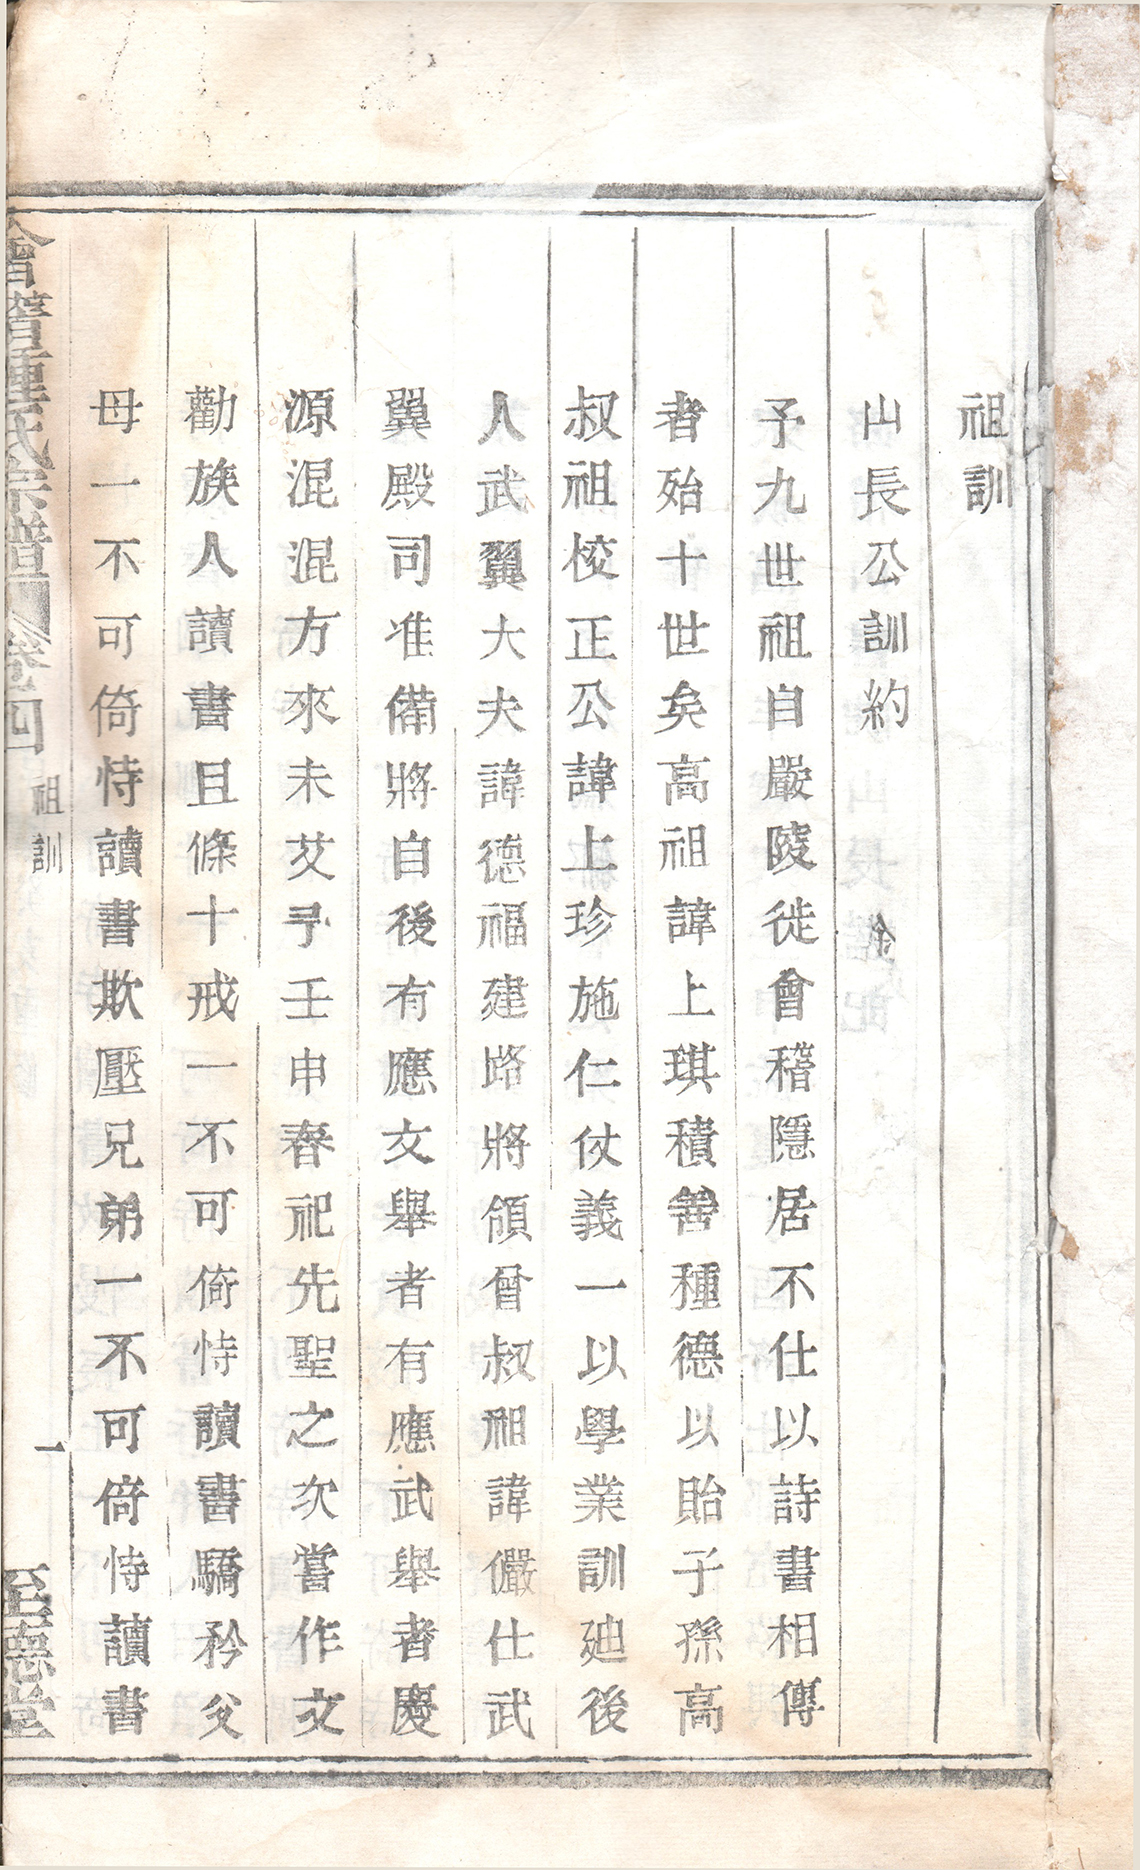 祖訓
山長公訓約
予九世祖自嚴陵徙會稽隱居不仕以詩書相傳
者殆十世矣高祖諱上琪積善種德以貽子孫高
叔祖校正公諱上珍施仁仗義一以學業訓廸後
人武翼大夫諱德福建路將領曾叔祖諱儼仕武
翼殿司准備將自後有應文舉者有應武舉者慶
源混混方來未艾予壬申春祀先聖之次嘗作文
勸族人讀書且條十戒一不可倚恃讀書驕矜父
母一不可倚恃讀書欺壓兄弟一不可倚恃讀書
會稽種氏宗譜 卷四 祖訓 一 至德堂